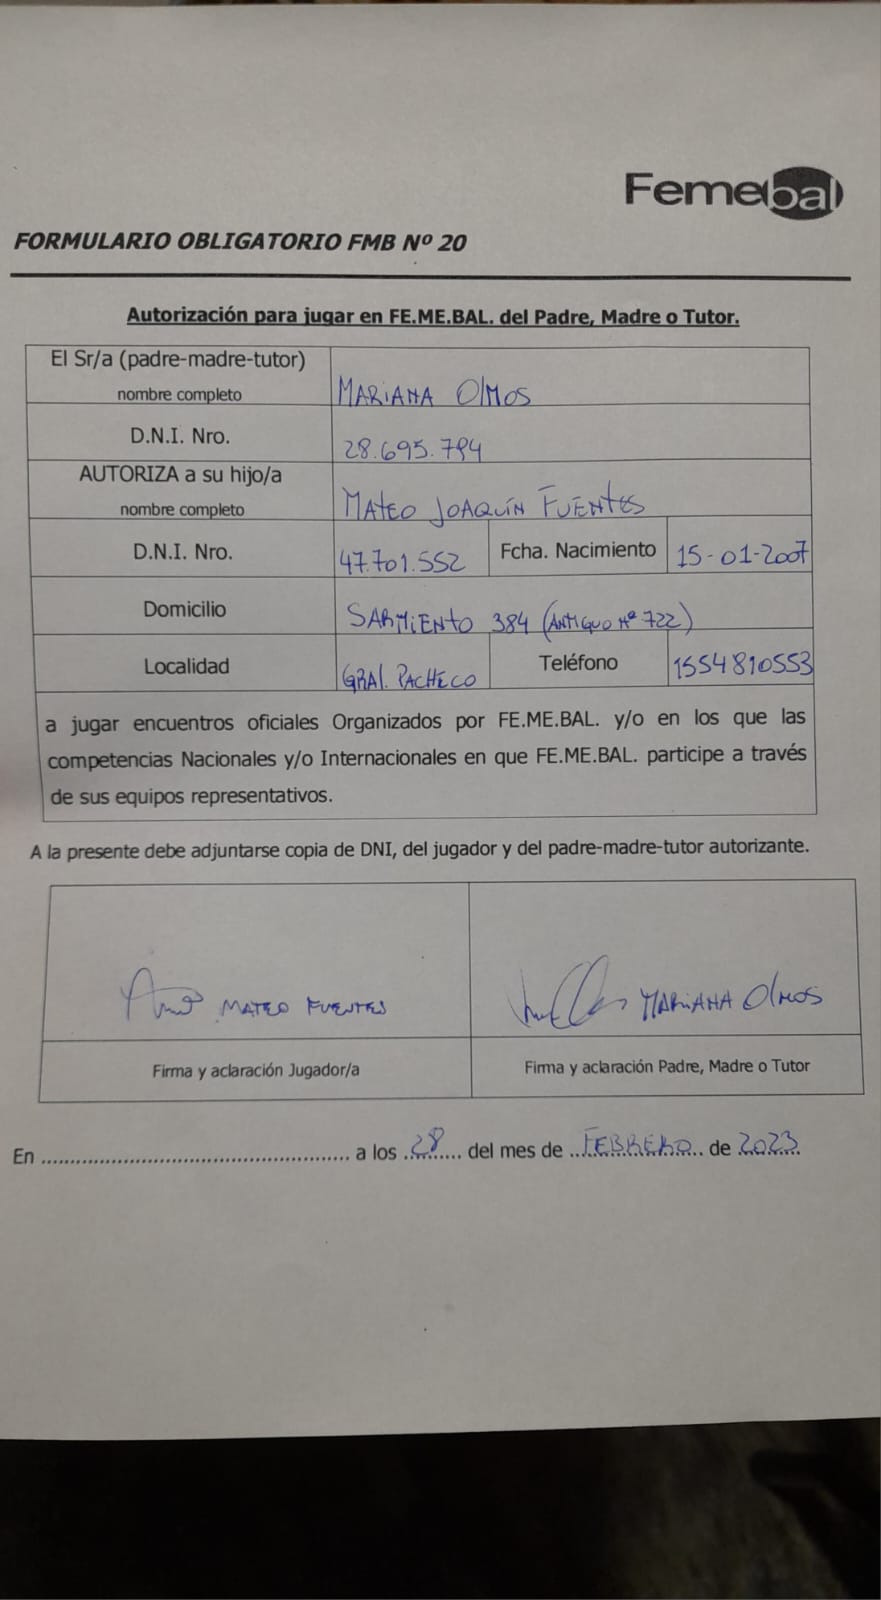 Femebal
FORMULARIO OBLIGATORIO FMB Nº 20
Autorización para jugar en FE.ME.BAL. del Padre, Madre o Tutor.
El Sr/a (padre-madre-tutor)
nombre completo
MARIANA OlMOS
D.N.I. Nro.
28.695.794
AUTORIZA a su hijo/a
nombre completo
MATEO JOAQUÍN FUENTES
D.N.I. Nro.
47.701.552
Fcha. Nacimiento
15-01-2007
Domicilio
SARMIENTO 384 (ANTIGUO Nº 722)
Localidad
GRAl. PACHECO
Teléfono
1554810553
a jugar encuentros oficiales Organizados por FE.ME.BAL. y/o en los que las
competencias Nacionales y/o Internacionales en que FE.ME.BAL. participe a través
de sus equipos representativos.
A la presente debe adjuntarse copia de DNI, del jugador y del padre-madre-tutor autorizante.
MATEO FUENTES
MARIANA OlMOS
Firma y aclaración Jugador/a
Firma y aclaración Padre, Madre o Tutor
En .................................................. a los 28 del mes de FEBRERO de 2023